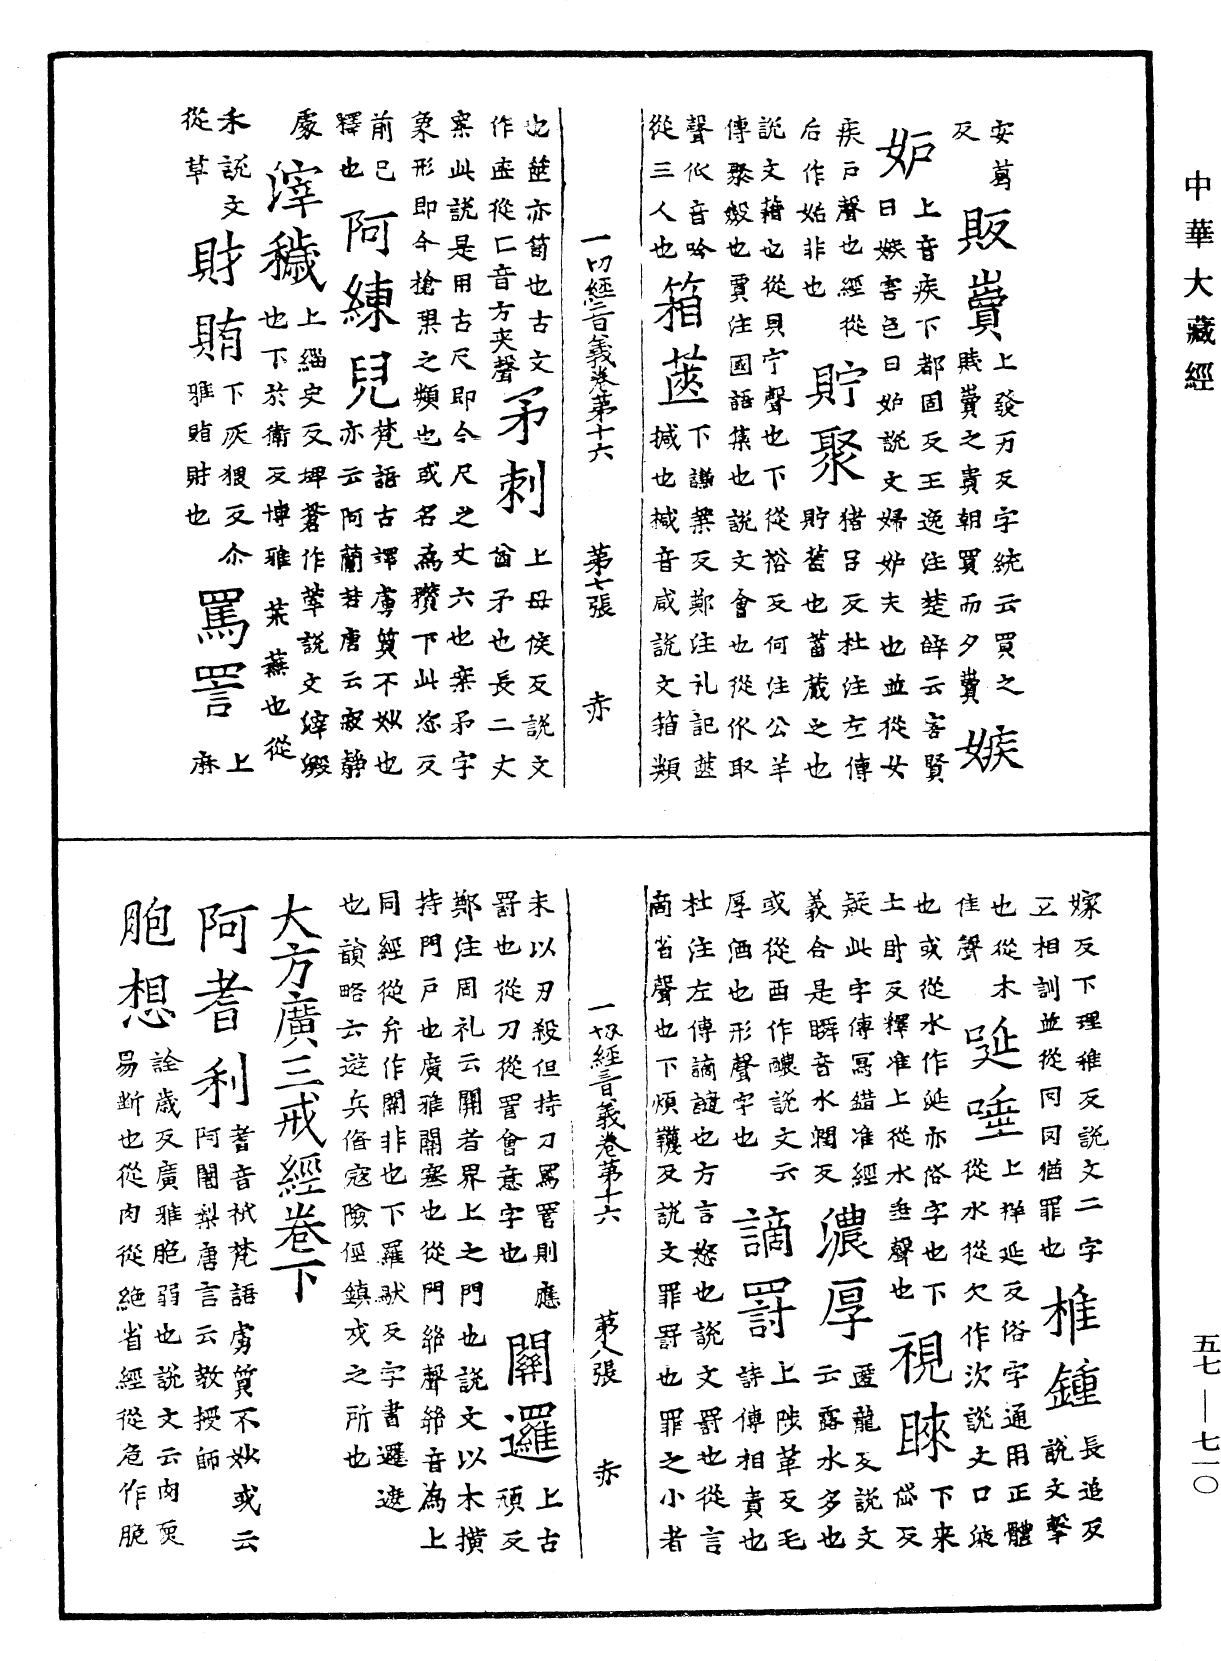 中華大藏經
安葛
反
販賣上發万反字統云買之
賤賣之貴朝買而夕賣
嫉
妒上音疾下都固反王逸注楚辭云害賢
曰嫉害色曰妒說文婦妒夫也並從女
疾戶聲也經從
后作妬非也
貯聚猪呂反杜注左傳
貯蓄也蓄藏之也
說文藉也從貝宁聲也下從裕反何注公羊
傳聚斂也賈注國語集也說文會也從㐺取
聲㐺音吟
從三人也
箱篋下謙葉反鄭注礼記篋
椷也椷音咸說文箱類
一切經音義卷第十六 第七張 赤
也篋亦笥也古文
作匧從匚音方夾聲
矛刺上母侯反說文
酋矛也長二丈
案此說是用古尺即今尺之丈六也案矛字
象形即今槍槊之類也或名為矟下此恣反
前已
釋也
阿練兒梵語古譯虜質不妙也
亦云阿蘭若唐云寂靜
處
滓穢上緇史反埤蒼作𦸗說文滓澱
也下於衛反博雅荒蕪也從
禾說文
從草
財賄下灰猥反尒
雅賄財也
罵詈上
麻
嫁反下理稚反說文二字
互相訓並從罔罔猶罪也
椎鍾長追反
說文擊
也從木
隹聲
唌唾上祥延反俗字通用正體
從水從欠作㳄說文口液
也或從水作涎亦俗字也下
土卧反釋准上從水垂聲也
視睞下来
岱反
疑此字傳寫錯准經
義合是瞬音水潤反
濃厚䢅龍反說文
云露水多也
或從酉作醲說文云
厚酒也形聲字也
謫罰上陟革反毛
詩傳相責也
杜注左傳謫譴也方言怒也說文罰也從言
啇省聲也下煩韈反說文罪罰也罪之小者
一切經音義卷第十六 第八張 赤
未以刃殺但持刀罵詈則應
罰也從刀從詈會意字也
關邏上古
頑反
鄭注周礼云關者界上之門也說文以木撗
持門戶也廣雅關塞也從門𢇅聲𢇅音為上
同經從弁作開非也下羅䭾反字書邏遮
也韻略云遊兵俻寇險俓鎮戍之所也
大方廣三戒經卷下
阿耆利耆音祇梵語虜質不妙或云
阿闍梨唐言云教授師
脃想詮歲反廣雅脃弱也說文云肉耎
易斷也從肉從絕省經從危作脆
五七—七一〇